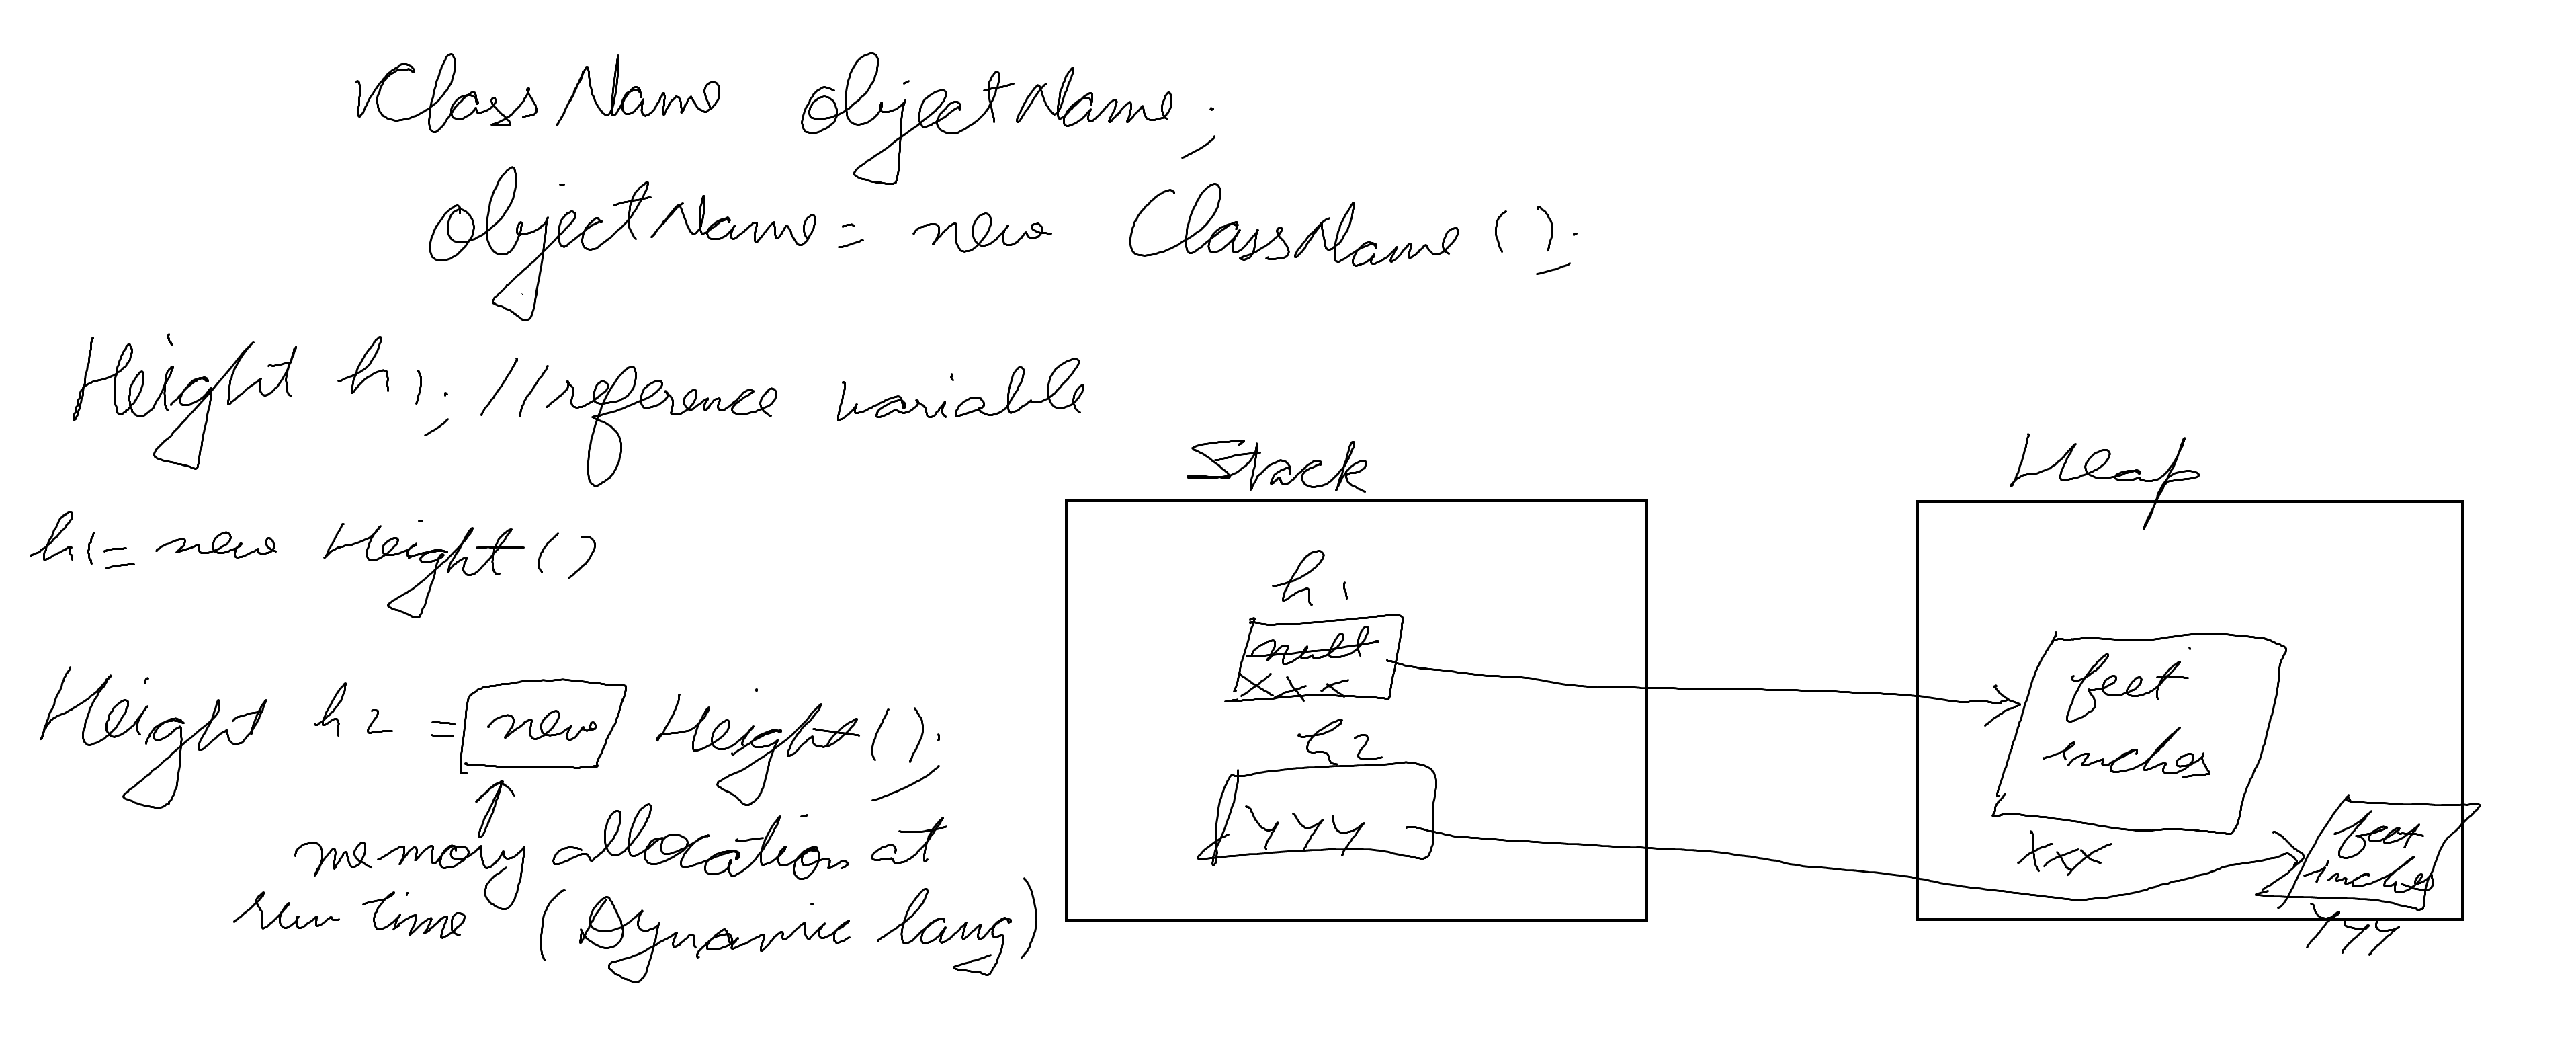 ClassName objectName;
objectName = new ClassName();
Height h1; //reference variable
h1= new Height()
Height h2 = new Height();
memory allocation at
run time (Dynamic lang)
Stack
h1
null
xxx
h2
yyy
Heap
feet
inches
xxx
feet
inches
yyy